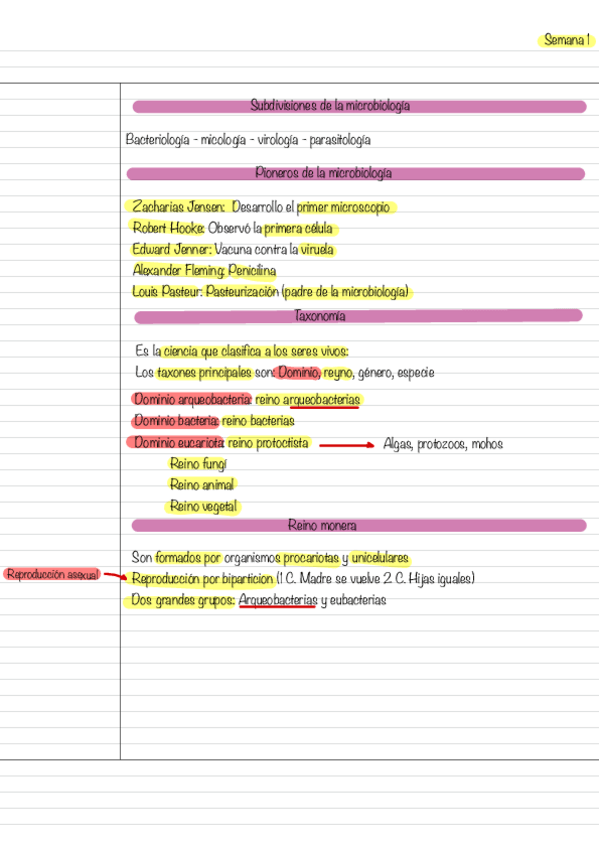 Semana 1
Subdivisiones de la microbiología
Bacteriología - micología - virología - parasitología
Pioneros de la microbiología
Zacharias Jensen: Desarrollo el primer microscopio
Robert Hooke: Observó la primera célula
Edward Jenner: Vacuna contra la viruela
Alexander Fleming: Penicilina
Louis Pasteur: Pasteurización (padre de la microbiología)
Taxonomía
Es la ciencia que clasifica a los seres vivos:
Los taxones principales son: Dominio, reyno, género, especie
Dominio arqueobacteria: reino arqueobacterias
Dominio bacteria: reino bacterias
Dominio eucariota: reino protoctista Algas, protozoos, mohos
Reino fungí
Reino animal
Reino vegetal
Reino monera
Son formados por organismos procariotas y unicelulares
Reproducción asexual Reproducción por biparticion (1 C. Madre se vuelve 2 C. Hijas iguales)
Dos grandes grupos: Arqueobacterias y eubacterias